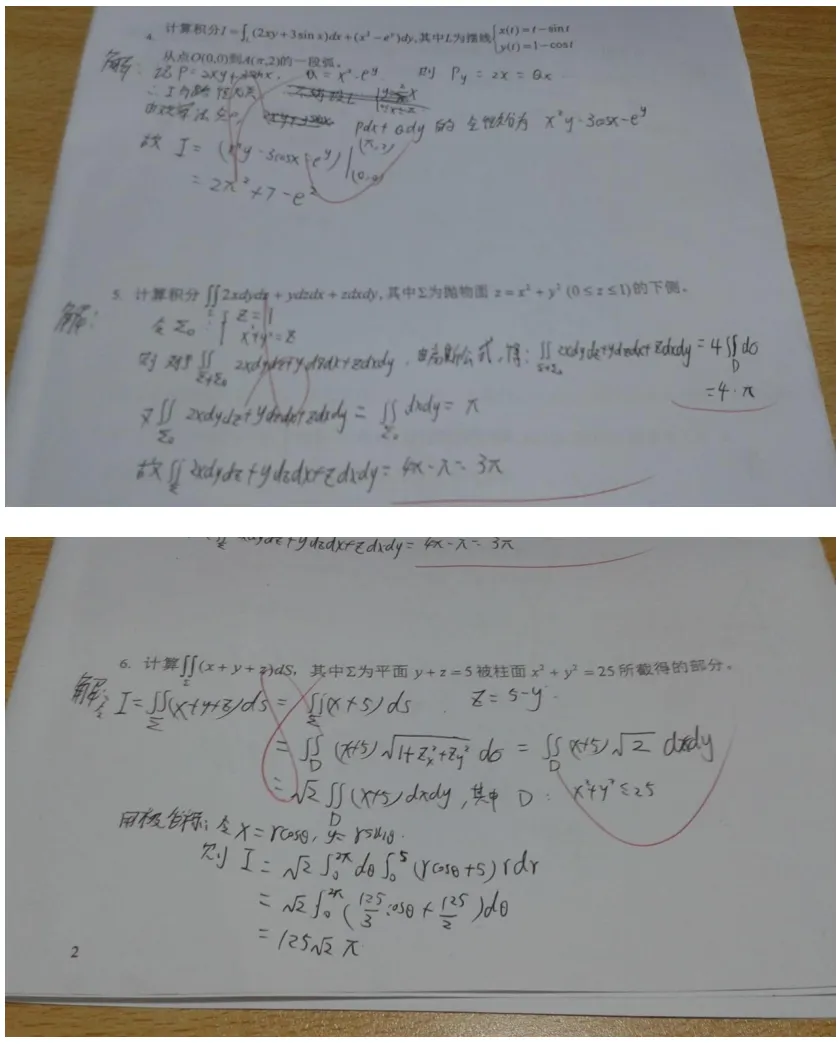 4. 计算积分I=∫_L(2xy+3sin x)dx+(x²-e^y)dy,其中L为摆线{x(t)=t-sint
y(t)=1-cost
从点O(0,0)到A(π,2)的一段弧。
解: 记P=2xy+3sinx, Q=x²-e^y 则 P_y=2x=Q_x
∴I与路径无关
Pdx+Qdy 的全微分为 x²y-3cosx-e^y
故 I=(x²y-3cosx-e^y)|(0,0)^(π,2)
=2π²+7-e²
5. 计算积分∬_Σ 2xdydz+ydzdx+zdxdy,其中Σ为抛物面 z=x²+y² (0≤z≤1)的下侧。
解: 令Σ₀:{z=1
x²+y²=z
则 对∬_{Σ+Σ₀} 2xdydz+ydzdx+zdxdy,由高斯公式,得:∬_{Σ+Σ₀} 2xdydz+ydzdx+zdxdy=4∬_D dσ
=4·π
又∬_{Σ₀} 2xdydz+ydzdx+zdxdy=∬_{Σ₀} dxdy=π
故∬_Σ 2xdydz+ydzdx+zdxdy=4π-π=3π
xdydz+ydzdx+zdxdy=4π-π=3π
6. 计算∬_Σ(x+y+z)dS,其中Σ为平面 y+z=5被柱面 x²+y²=25所截得的部分。
解: I=∬_Σ(x+y+z)ds=∬_Σ(x+5)ds. z=5-y
=∬_D (x+5)√(1+z_x²+z_y²) dσ=∬_D (x+5)√2 dxdy
=√2∬_D(x+5)dxdy,其中 D: x²+y²≤25
用极坐标:令x=rcosθ,y=rsinθ.
则 I=√2∫₀^{2π}dθ∫₀^5(rcosθ+5)rdr
=√2∫₀^{2π}(125/3 cosθ+125/2)dθ
=125√2π
2